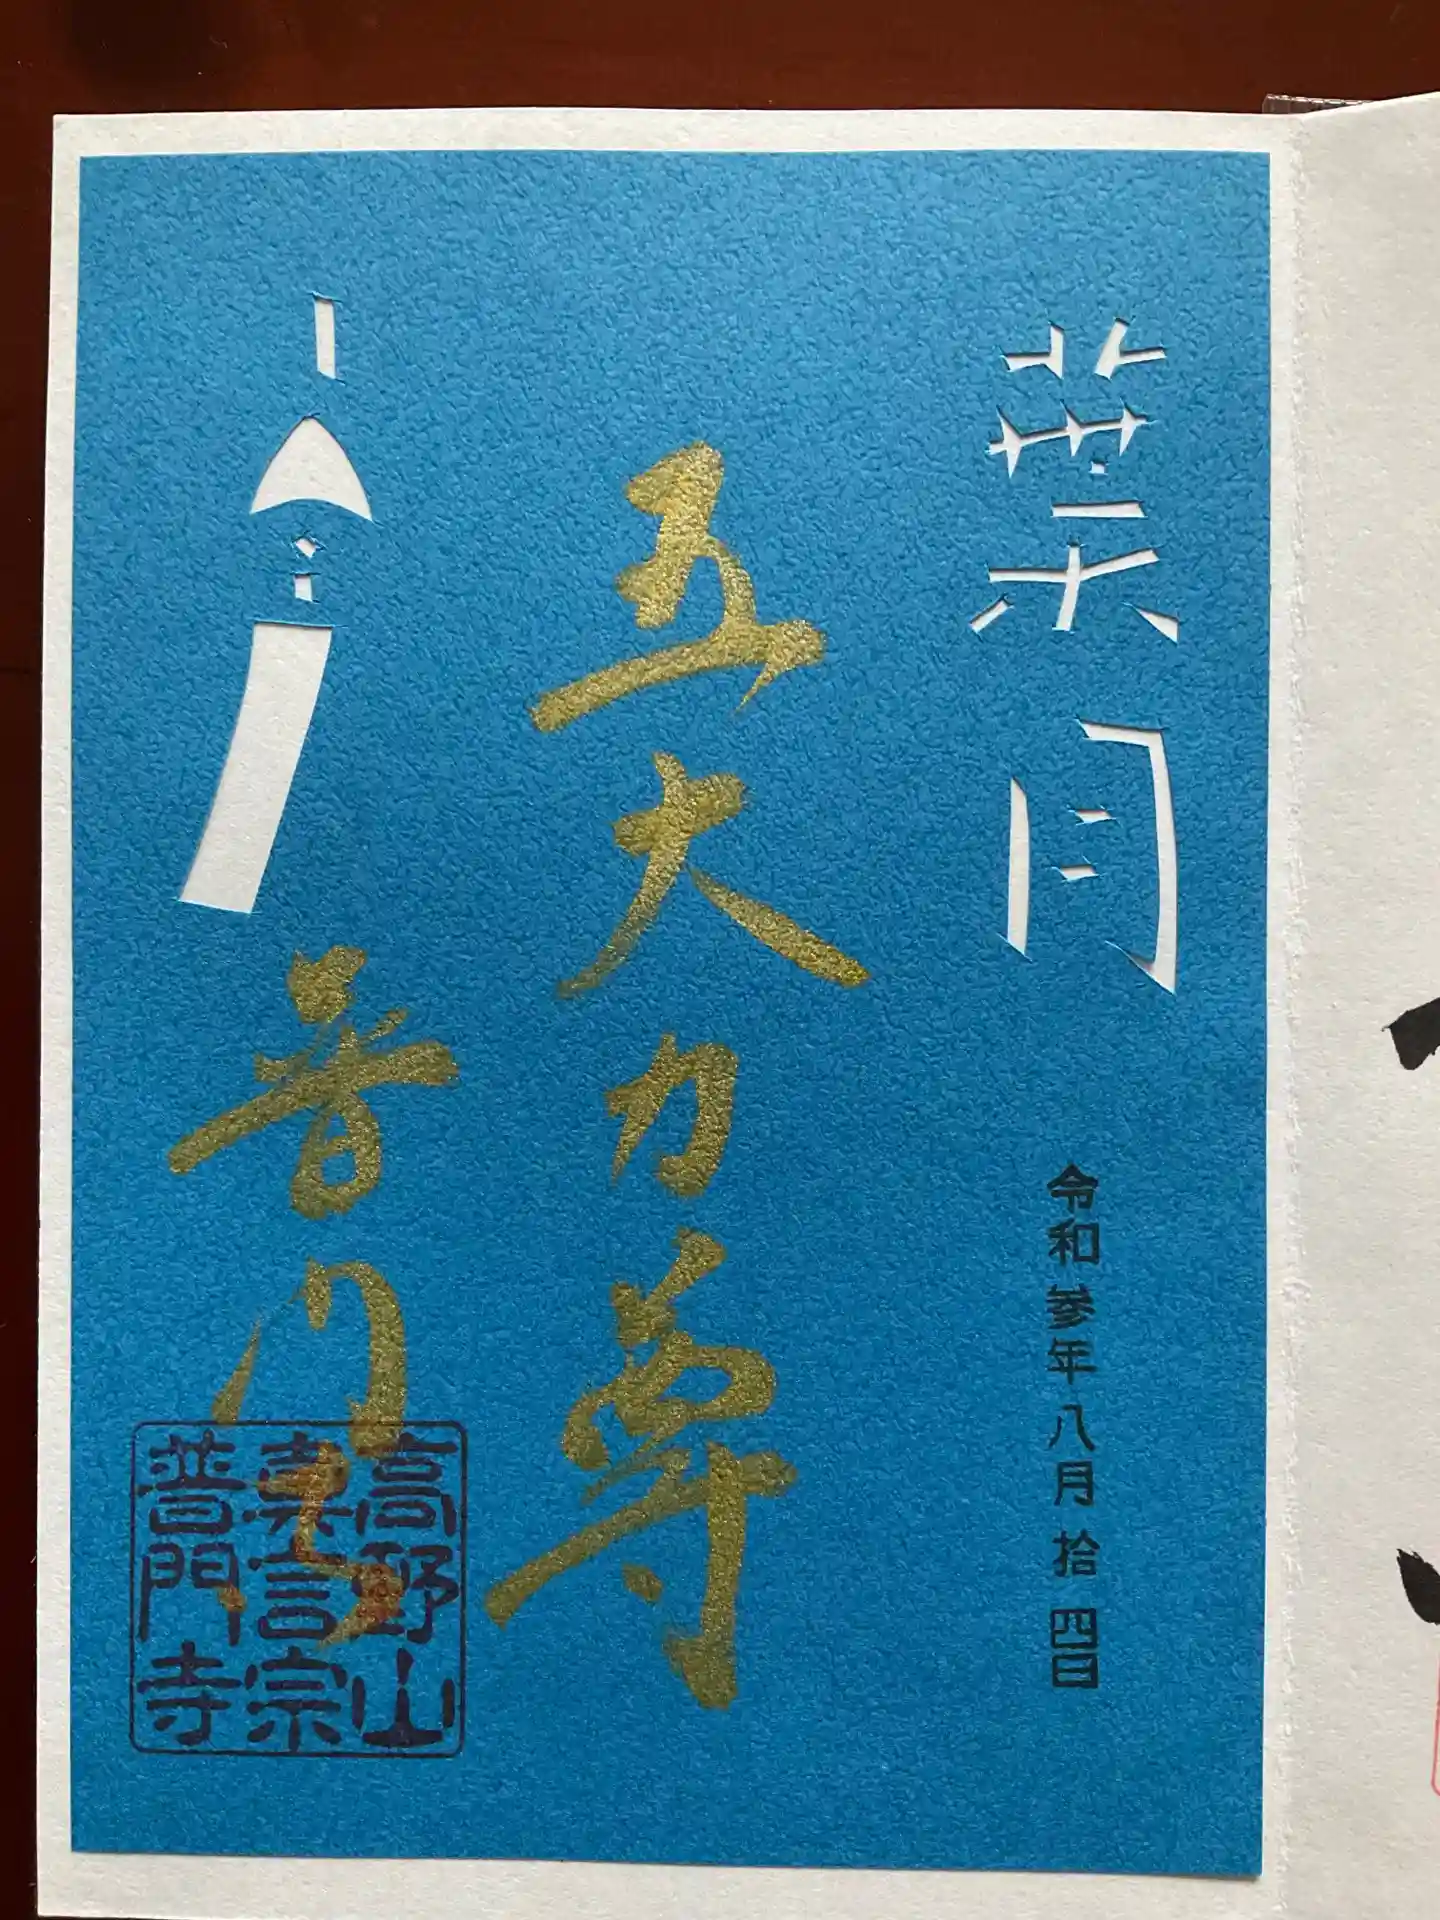 葉月
令和参年八月拾四日
五大力尊
普門寺
高野山
真言宗
普門寺